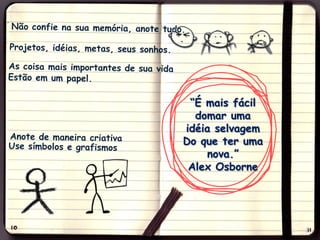 Não confie na sua memória, anote tudo.
Projetos, idéias, metas, seus sonhos.
As coisa mais importantes de sua vida
Estão em um papel.
Anote de maneira criativa
Use símbolos e grafismos
10
“É mais fácil
domar uma
idéia selvagem
Do que ter uma
nova.”
Alex Osborne
11